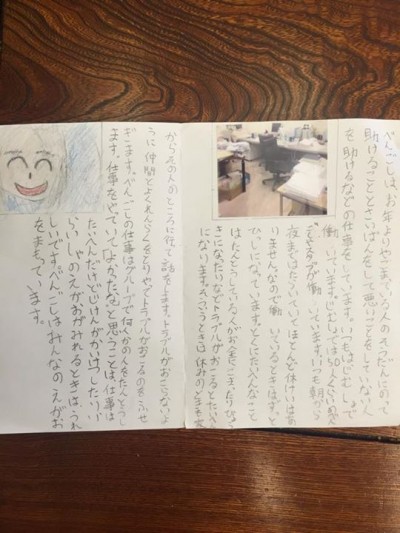 べんごしは、お年よりやこまっている人のそうだんにのって
助けることとさいばんをして悪いことをしていない人
を助けるなどの仕事をしています。いつもはじむしょで
働いています。じむしょでは
が働いています。いつも朝から
夜まではたらいていて、ほとんど休けいはあ
りません。なので働いているときはずっと
になっています。とくにたいへんなこと
はたんとうしている人がお金にこまったりびょう
きになったりなどトラブルがおこるとたいへん
になります。そういうときは休みのときも
からその人のところに行って話します。トラブルがおこらないよ
うに仲間とよくれんらくをとりやってトラブルがおこるのをふせ
ぎます。べんごしの仕事はグループで何人かの人をたんとうし
ます。仕事をやっていてよかったなと思うことは、仕事は
たいへんだけどじけんがかいけつしたり、
いらいしゃのえがおがみれるときは、うれ
しいです。べんごしはみんなのえがお
をまもっています。